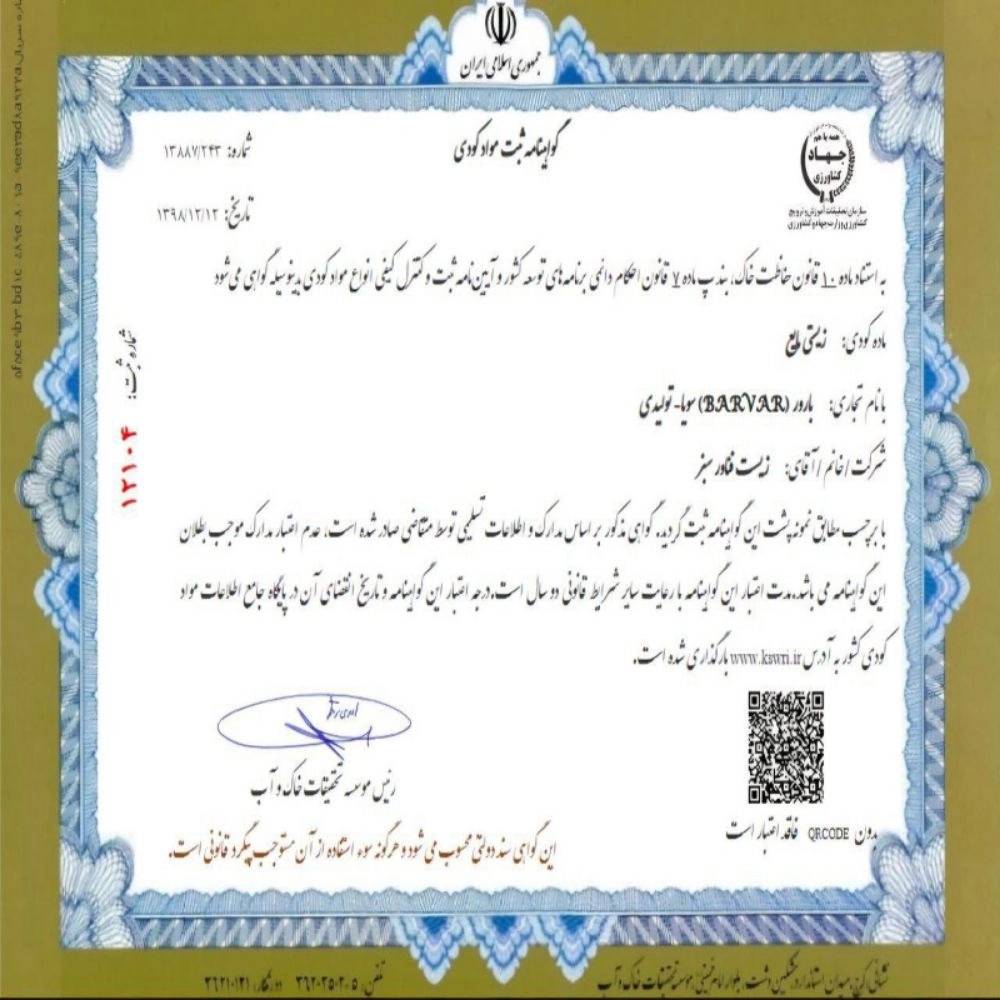 جمهوری اسلامی ایران
همه با هم
جهاد
کشاورزی
سازمان تحقیقات، آموزش و ترویج
کشاورزی وزارت جهاد کشاورزی
گواهینامه ثبت مواد کودی
شماره: ۱۳۸۸۷/۲۴۳
تاریخ: ۱۳۹۸/۱۲/۱۲
به استناد ماده ۱۰ قانون حفاظت خاک، بند پ ماده ۷ قانون احکام دائمی برنامه های توسعه کشور و آیین نامه ثبت و کنترل کیفی انواع مواد کودی بدینوسیله گواهی می شود
ماده کودی: زیستی مایع
با نام تجاری: بارور (BARVAR) سویا- تولیدی
شرکت / خانم / آقای: زیست فناور سبز
با برچسب مطابق نمونه پشت این گواهینامه ثبت گردید. گواهی مذکور بر اساس مدارک و اطلاعات تسلیمی توسط متقاضی صادر شده است، عدم اعتبار مدارک موجب بطلان
این گواهینامه می باشد. مدت اعتبار این گواهینامه با رعایت سایر شرایط قانونی دو سال است. درجه اعتبار این گواهینامه و تاریخ انقضای آن در پایگاه جامع اطلاعات مواد
کودی کشور به آدرس www.kswri.ir بارگذاری شده است.
شماره ثبت:
۱۲۱۰۴
رئیس موسسه تحقیقات خاک و آب
بدون QRCODE فاقد اعتبار است
این گواهی سند دولتی محسوب می شود و هرگونه سوء استفاده از آن مستوجب پیگرد قانونی است.
نشانی: کرج، میدان استاندارد، مشکین دشت، بلوار امام خمینی، موسسه تحقیقات خاک و آب
تلفن: ۵-۳۶۲۰۲۵۲۰ دورنگار: ۳۶۲۱۰۱۲۱